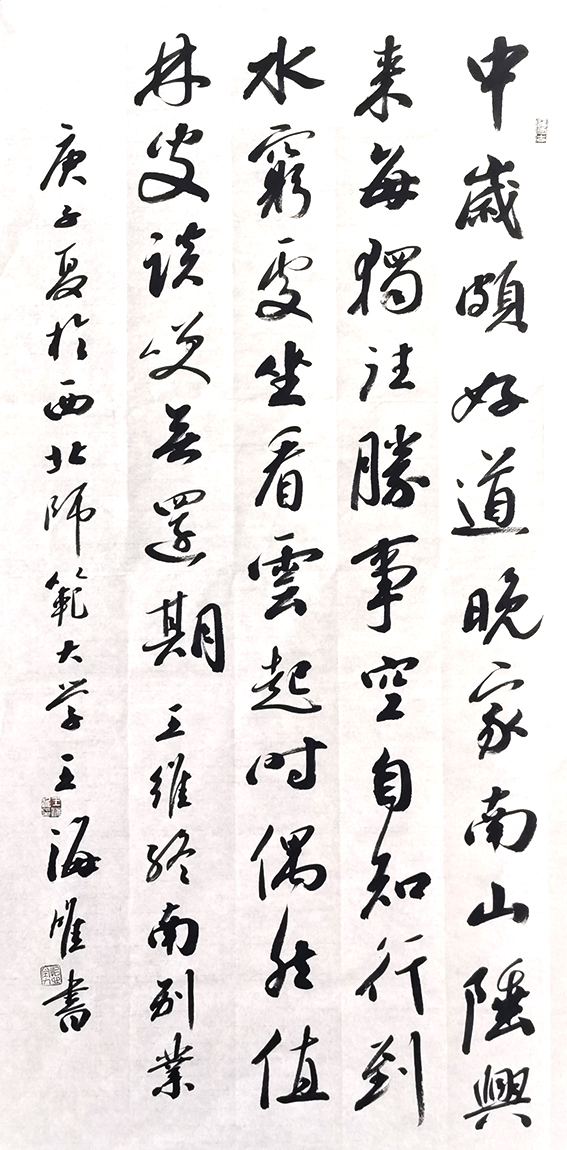 中歲頗好道晚家南山陲興
来每獨往勝事空自知行到
水窮處坐看雲起时偶然值
林叟談笑無還期 王維終南别業
庚子夏於西北師範大学王海雁書